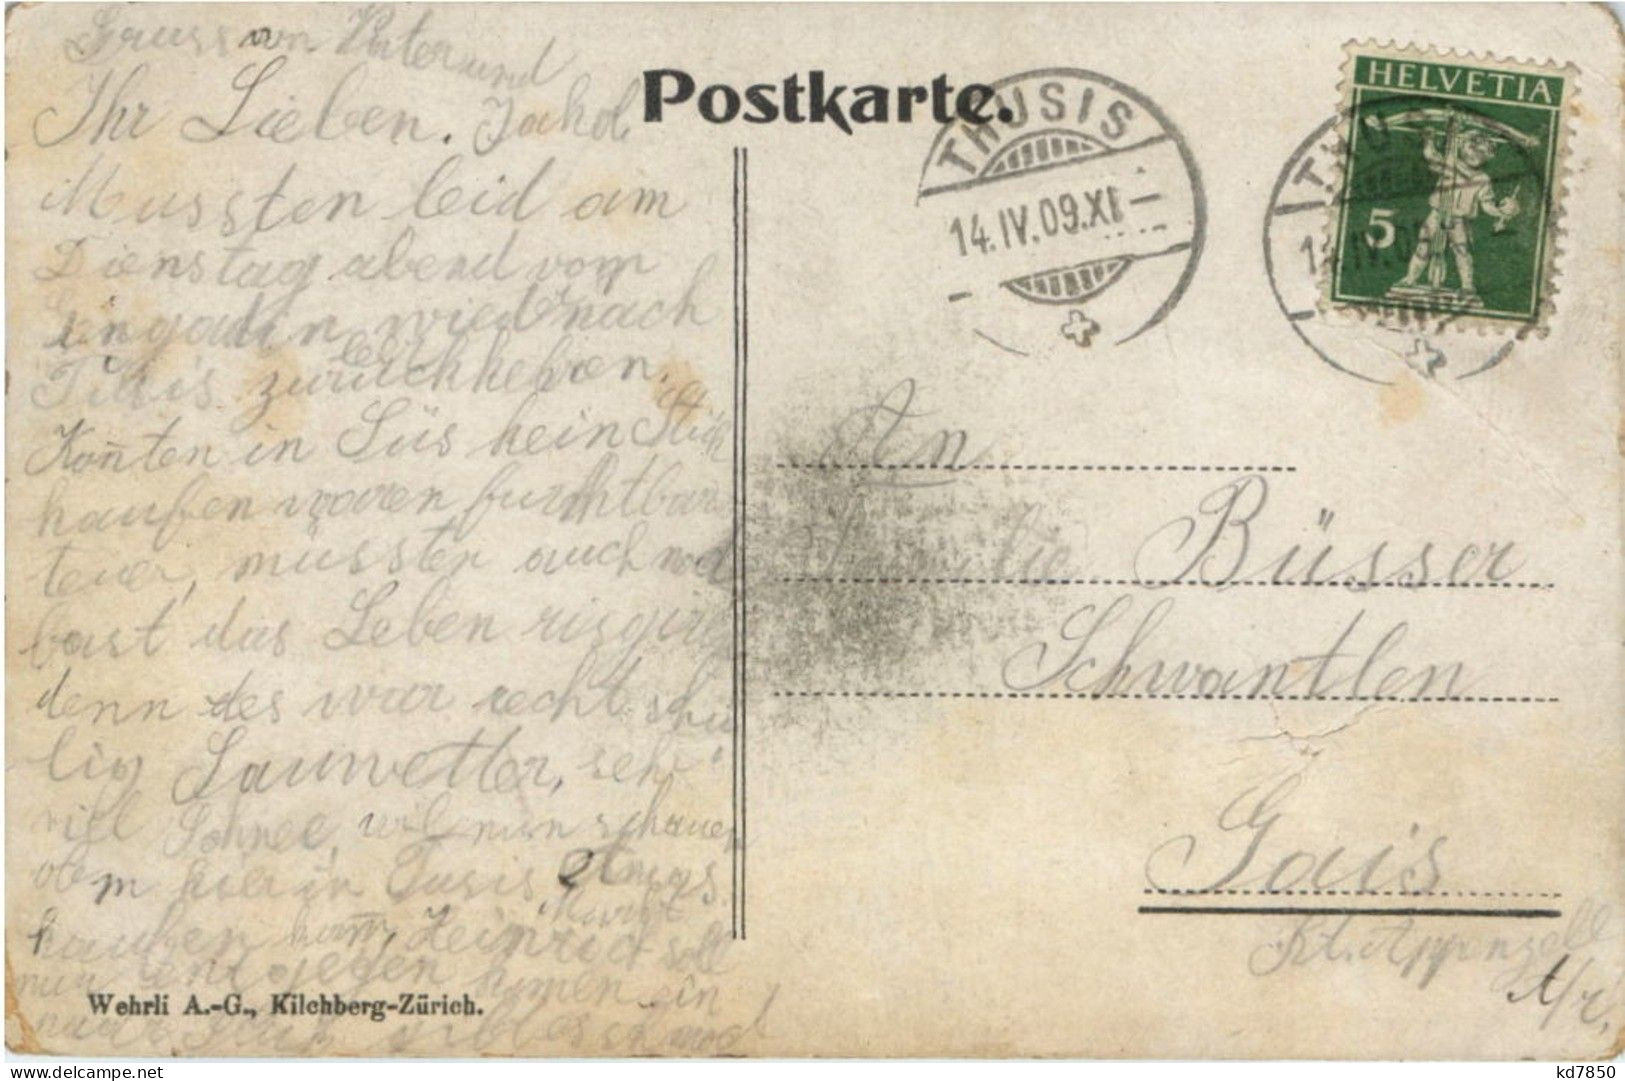 Gruss von Vater und
Ihr Lieben. Jakob
Mussten leid am
Dienstag abend vom
Engadin wieder nach
Tusis zurückkehren,
Konten in Süs kein Stück
kaufen waren furchtbar
teuer, mussten auch noch
bast das Leben risgiren
denn des war recht schü
lig Sauwetter, sehr
viel Schnee, wil nun schauen
ob m hier in Tusis etwas
Markt
kaufen kann, Heinrich soll
nur entgegen kommen ein
Postkarte.
THUSIS
14.IV.09.XI
HELVETIA
5
THUSIS
14.IV.09
An
Familie Büsser
Schwantlen
Gais
Kt. Appenzell
A/r.
Wehrli A.-G., Kilchberg-Zürich.
delcampe.net
kd7850